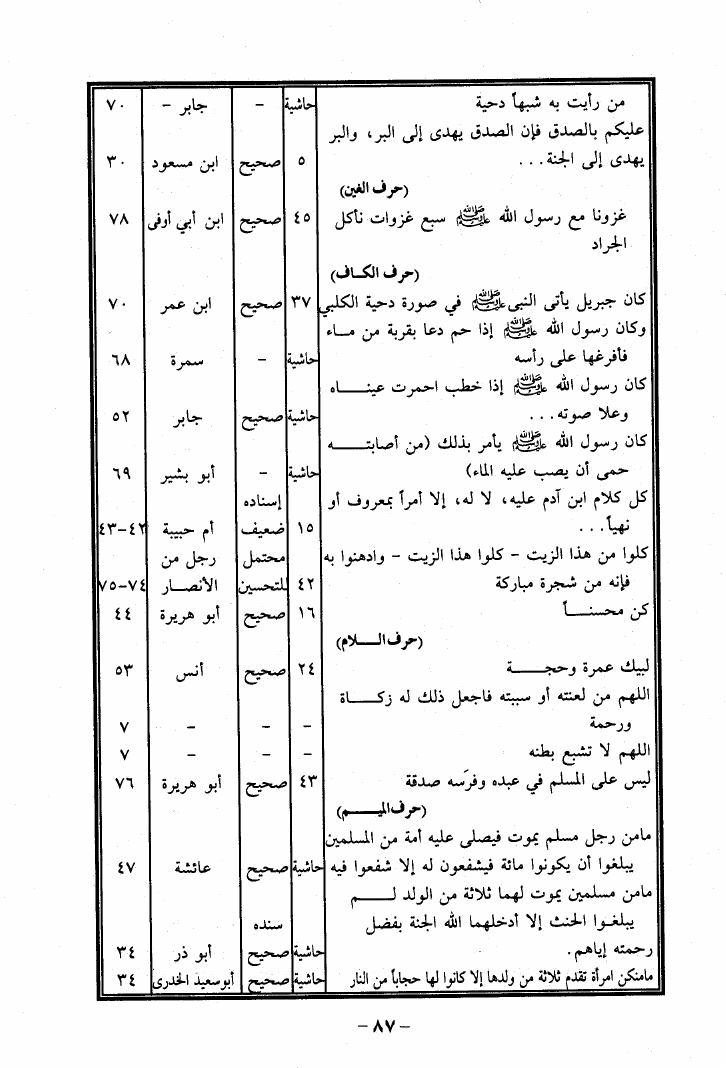 من رأيت به شبهاً دحية حاشية – جابر – ٧٠
عليكم بالصدق فإن الصدق يهدى إلى البر، والبر
يهدى إلى الجنة... ٥ صحيح ابن مسعود ٣٠
(حرف الغين)
غزونا مع رسول الله ﷺ سبع غزوات نأكل ٤٥ صحيح ابن أبي أوفى ٧٨
الجراد
(حرف الكـاف)
كان جبريل يأتى النبى ﷺ في صورة دحية الكلبي ٣٧ صحيح ابن عمر ٧٠
وكان رسول الله ﷺ إذا حم دعا بقربة من مـاء
فأفرغها على رأسه حاشية – سمرة ٦٨
كان رسول الله ﷺ إذا خطب احمرت عينـــاه
وعلا صوته... حاشية صحيح جابر ٥٢
كان رسول الله ﷺ يأمر بذلك (من أصابتــــه
حمى أن يصب عليه الماء) حاشية – أبو بشير ٦٩
كل كلام ابن آدم عليه، لا له، إلا أمراً بمعروف أو إسناده
نهياً... ١٥ ضعيف أم حبيبة ٤٢–٤٣
كلوا من هذا الزيت – كلوا هذا الزيت – وادهنوا به محتمل رجل من
فإنه من شجرة مباركة ٤٢ للتحسين الأنصــار ٧٤–٧٥
كن محسنــــاً ١٦ صحيح أبو هريرة ٤٤
(حرف الـــلام)
لبيك عمرة وحجــــة ٢٤ صحيح أنس ٥٣
اللهم من لعنته أو سببته فاجعل ذلك له زكــاة
ورحمة – – – ٧
اللهم لا تشبع بطنه – – – ٧
ليس على المسلم في عبده وفرَسه صدقة ٤٣ صحيح أبو هريرة ٧٦
(حرف الميــــم)
مامن رجل مسلم يموت فيصلى عليه أمة من المسلمين
يبلغوا أن يكونوا مائة فيشفعون له إلا شفعوا فيه حاشية صحيح عائشة ٤٧
مامن مسلمين يموت لهما ثلاثة من الولد لــــم
يبلغـوا الحنث إلا أدخلهما الله الجنة بفضل سنده
رحمته إياهم. حاشية صحيح أبو ذر ٣٤
مامنكن امرأة تقدم ثلاثة من ولدها إلا كانوا لها حجاباً من النار حاشية صحيح أبو سعيد الخدرى ٣٤
– ٨٧ –